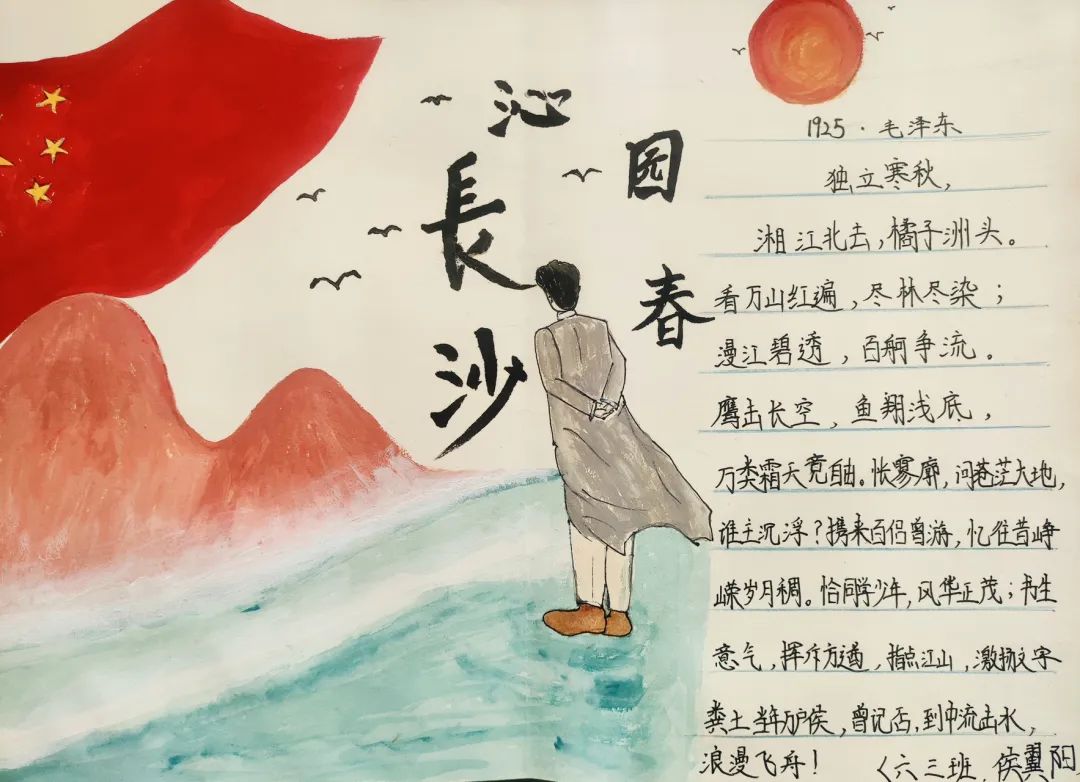 沁园春
長沙
1925·毛泽东
独立寒秋,
湘江北去,橘子洲头。
看万山红遍,尽林尽染;
漫江碧透,百舸争流。
鹰击长空,鱼翔浅底,
万类霜天竞自由。怅寥廓,问苍茫大地,
谁主沉浮?携来百侣曾游,忆往昔峥
嵘岁月稠。恰同学少年,风华正茂;书生
意气,挥斥方遒,指点江山,激扬文字
粪土当年万户侯,曾记否,到中流击水,
浪漫飞舟!
〈六三班 侯翼阳